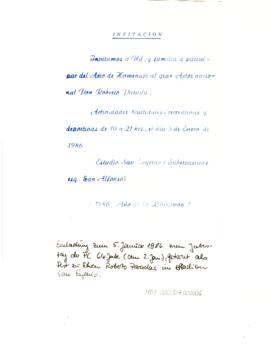 INVITACION
Invitamos a Ud. y familia a partici-
par del Acto de Homenaje al gran Actor nacio-
nal Don Roberto Parada.
Actividades Culturales-recreativas y
deportivas de 10 a 21 hrs. el día 5 de Enero de
1986
Estadio San Eugenio Subterraneos
esq. San Alfonso
! 1986, Año de la Liberación !
Einladung zum 5. Januar 1986 zum
tag der PC (am 2. Jan), als
Fest zu Ehren Roberto Paradas im Stadion
San Eugenio.